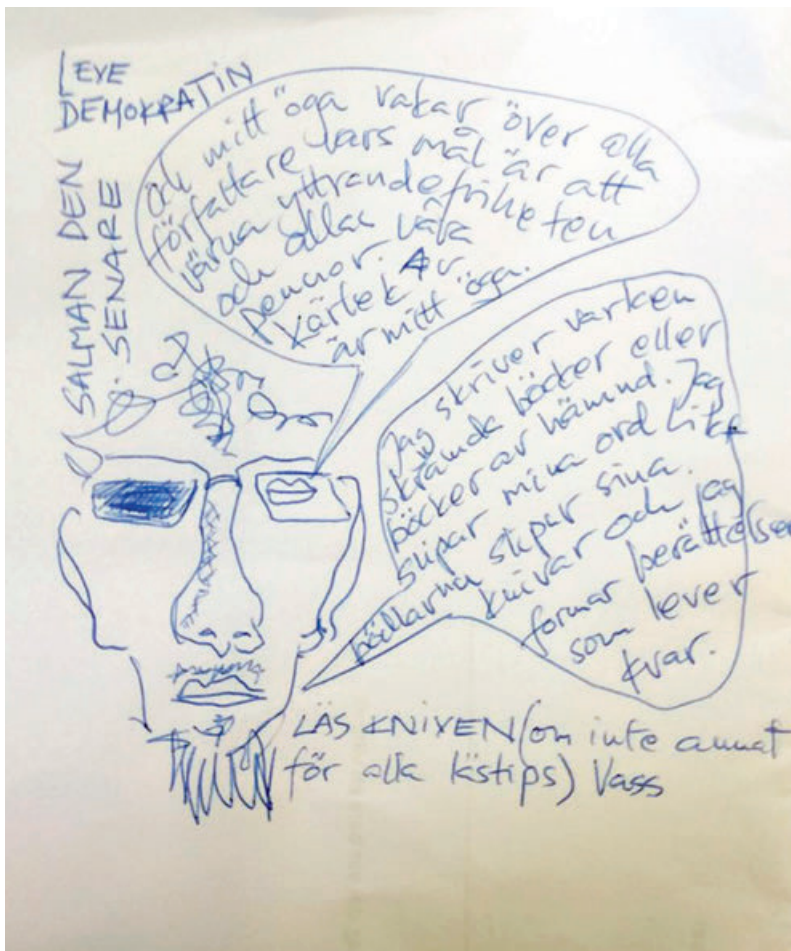 LEVE
DEMOKRATIN
SALMAN DEN
SENARE
Och mitt öga vakar över alla
författare vars mål är att
värna yttrandefriheten
och allas våra
pennor.
Kärlek
är mitt öga.
Jag skriver varken
skrämda böcker eller
böcker av hämnd. Jag
slipar mina ord likt
bödlarna slipar sina
knivar och jag
formar berättelser
som lever
kvar.
LÄS KNIVEN (om inte annat
för alla lästips) Vass